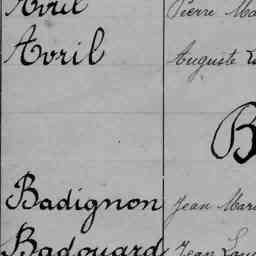 Avril Pierre
Avril Auguste
B
Badignon Jean
Badouard Jean